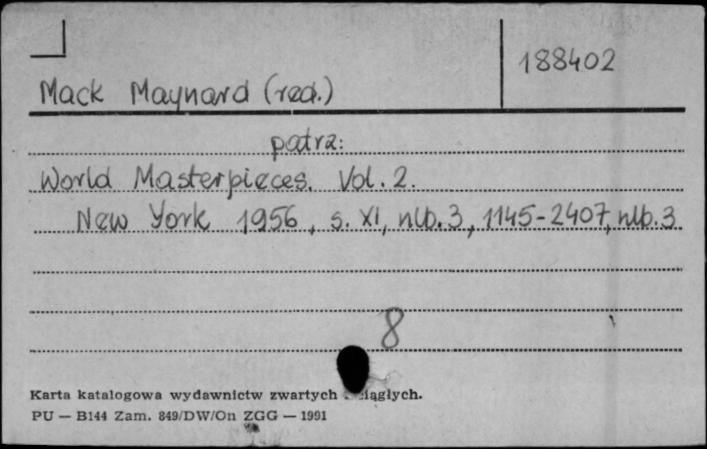 188402
Mack Maynard (red.)
patrz:
World Masterpieces. Vol. 2.
New York 1956, s. XI, nlb. 3, 1145-2407, nlb. 3
8
Karta katalogowa wydawnictw zwartych
PU — B144 Zam. 849/DW/On ZGG — 1991